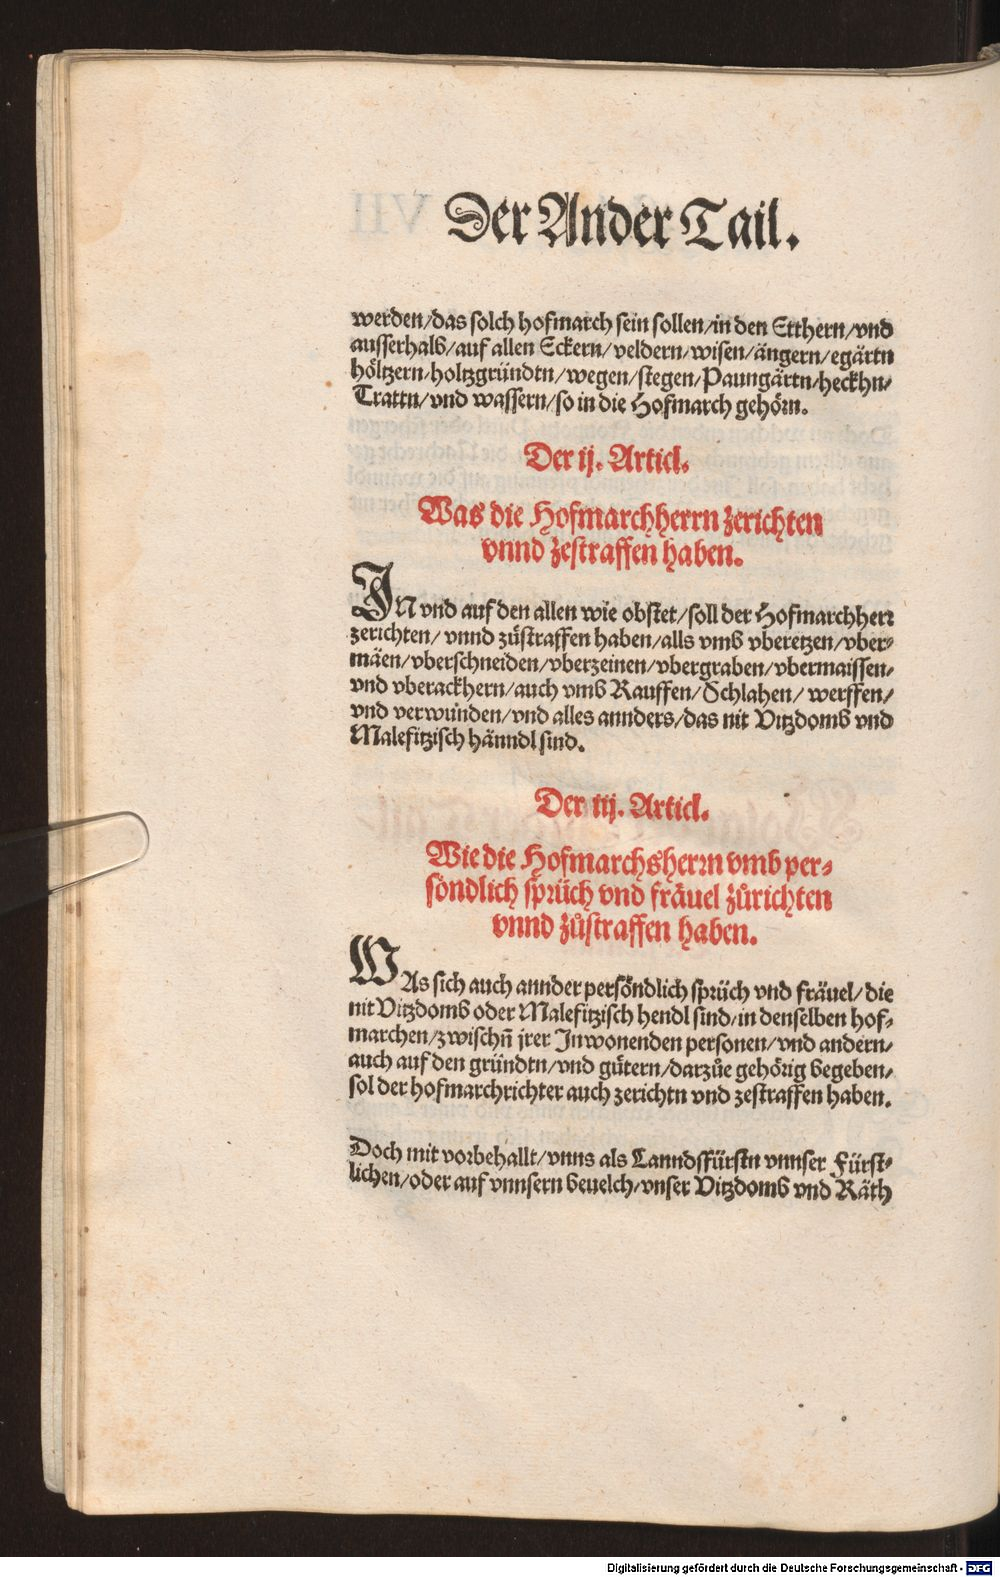 Der Ander Tail.
werden/das solch hofmarch sein sollen/in den Etthern/vnd
ausserhalb/auf allen Eckern/veldern/wisen/ängern/egärtn
höltzern/holtzgründtn/wegen/stegen/Paungärtn/heckhn/
Trattn/vnd wassern/so in die Hofmarch gehörn.
Der ij. Articl.
Was die Hofmarchherrn zerichten
vnnd zestraffen haben.
IN vnd auf den allen wie obstet/soll der Hofmarchherr
zerichten/vnnd züstraffen haben/alls vmb vberetzen/vber-
mäen/vberschneiden/vberzeinen/vbergraben/vbermaissen/
vnd vberackhern/auch vmb Rauffen/Schlahen/werffen/
vnd verwunden/vnd alles annders/das nit Vitzdomb vnd
Malefitzisch hänndl sind.
Der iij. Articl.
Wie die Hofmarchsherrn vmb per-
söndlich sprüch vnd fräuel zůrichten
vnnd zůstraffen haben.
WAs sich auch annder persöndlich sprüch vnd fräuel/die
nit Vitzdomb oder Malefitzisch hendl sind/in denselben hof-
marchen/zwischñ jrer Inwonenden personen/vnd andern/
auch auf den gründtn/vnd gütern/darzůe gehörig begeben/
sol der hofmarchrichter auch zerichtn vnd zestraffen haben.
Doch mit vorbehallt/vnns als Lanndsfürstn vnnser Fürst-
lichen/oder auf vnnsern beuelch/vnser Vitzdomb vnd Räth
Digitalisierung gefördert durch die Deutsche Forschungsgemeinschaft - DFG